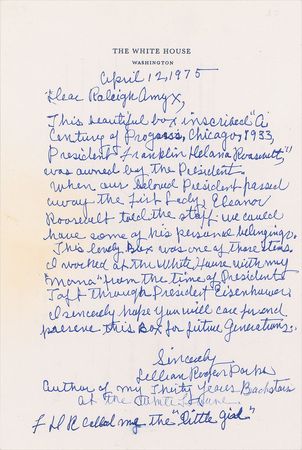 THE WHITE HOUSE
WASHINGTON
April 12, 1975
Dear Raleigh Amyx,
This beautiful box inscribed "A
Century of Progress, Chicago, 1933,
President Franklin Delano Roosevelt,"
was owned by the President.
When our beloved President passed
away the First Lady, Eleanor
Roosevelt told the staff we could
have some of his personal belongings.
This lovely Box was one of those items.
I worked at the White House with my
"mama" from the time of Presidents
Taft through President Eisenhower.
I sincerely hope you will care for and
preserve this Box for future Generations.
Sincerely
Lillian Rogers Parks
Author of my Thirty Years Backstairs
at the White House
F D R called me the "little girl"